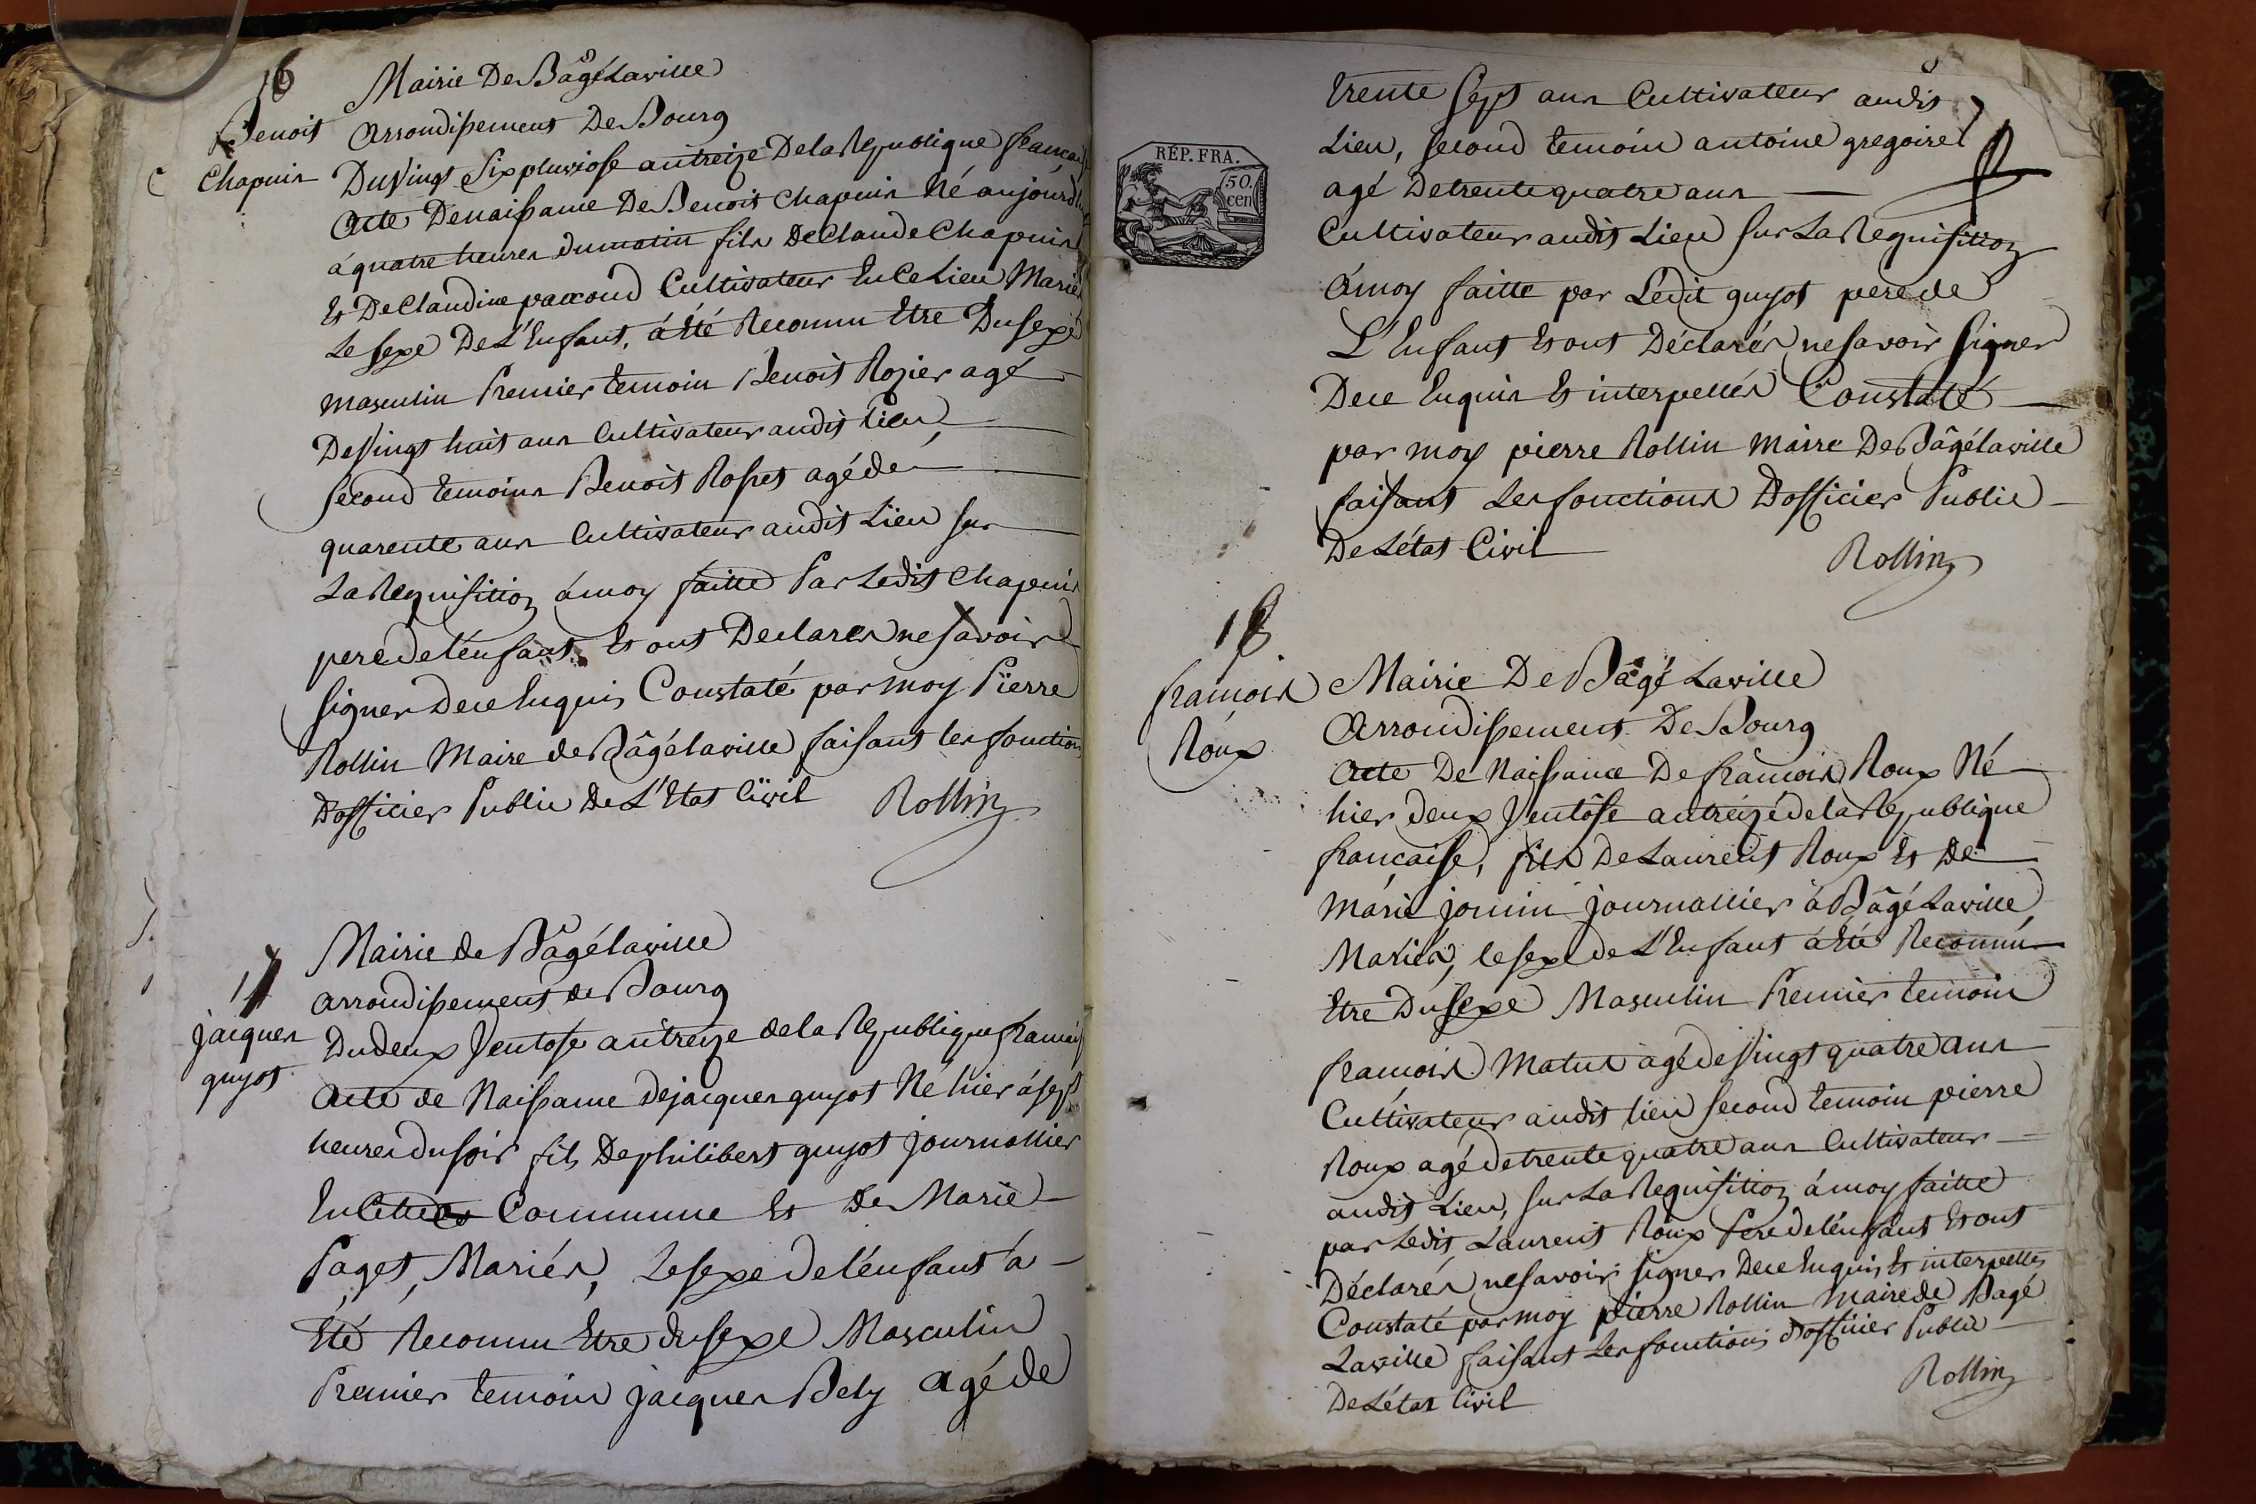 16
Benoit
Chapuis
Mairie De Bâgé Laville
Arrondissement De Bourg
Du Vingt Six pluviose an treize De la Republique français
Acte De naissance De Benoit Chapuis Né aujourd'hui
à quatre heures du matin fils De Claude Chapuis
Et De Claudine pacoud Cultivateur En Ce Lieu Mariés
Le sexe De L'Enfant, à Eté Reconnu Etre Du sexe
masculin Premier temoin Benoit Rozier agé
De Vingt huit ans Cultivateur audit lieu,
Second temoins Benoit Rosset agé de
quarente ans Cultivateur audit Lieu sur
La Requisition à moy faitte Par Ledit Chapuis
pere de lénfant, Et ont Declarés ne savoir
signer De ce Enquis Constaté par moy Pierre
Rollin Maire de Bâgé laville faisant les fonctions
D'officier Public De L'Etat Civil
Rollin
17
jacques
guyot
Mairie de Bâgé laville
arrondissement de Bourg
Du deux Ventose an treize de la Republique français
Acte de Naissance de jacques guyot Né hier à sept
heures du soir fils De philibert guyot journallier
En Cette Commune Et De Marie
Paget, Mariés, Le sexe de lénfant à
Eté Reconnu Etre du sexe Masculin
Premier temoin jacques Bely agé de
8
RÉP. FRA.
50.
cen
trente sept ans Cultivateur audit
Lieu, second temoin antoine gregoire
agé De trente quatre ans
Cultivateur audit Lieu sur La Requisition
à moy faitte par Ledit guyot pere de
L'Enfant Et ont Déclarés ne savoir signer
De ce Enquis Et interpellés Constaté
par moy pierre Rollin Maire De Bâgé laville
faisant Les fonctions D'officier Public
De Létat Civil
Rollin
18
françois
Roux
Mairie De Bâgé Laville
Arrondissement De Bourg
Acte De Naissance De françois Roux Né
hier deux Ventôse an treize de la Republique
française, fils De Laurent Roux Et De
Marie jouin journallier à Bâgé Laville,
Mariés, le sexe de L'Enfant à Eté Reconnu
Etre Du sexe Masculin Premier temoin
françois Matut agé de Vingt quatre ans
Cultivateur audit lieu second temoin pierre
Roux agé de trente quatre ans Cultivateur
audit Lieu, sur La Requisition à moy faitte
par Ledit Laurent Roux Pere de lénfant Et ont
Déclarés ne savoir signer De ce Enquis Et interpellés
Constaté par moy pierre Rollin Maire de Bagé
Laville faisant Les fonctions d'officier Public
De Létat Civil
Rollin